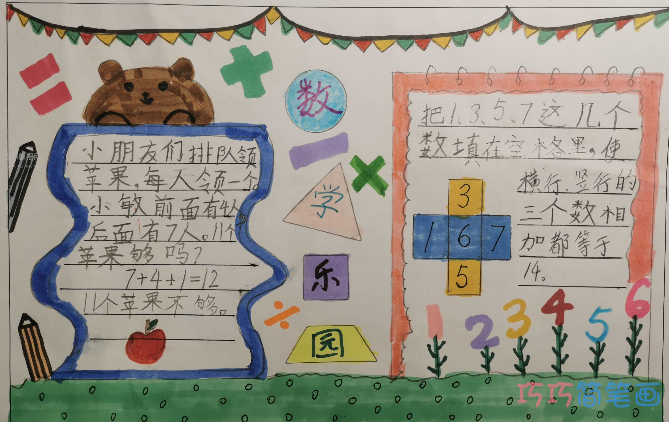 小朋友们排队领
苹果,每人领一个。
小敏前面有4人,
后面有7人。11个
苹果够吗?
7+4+1=12
11个苹果不够。
数
学
乐
园
把1、3、5、7这几个
数填在空格里,使
横行、竖行的
三个数相
加都等于
14。
3
1 6 7
5
1 2 3 4 5 6
巧巧简笔画